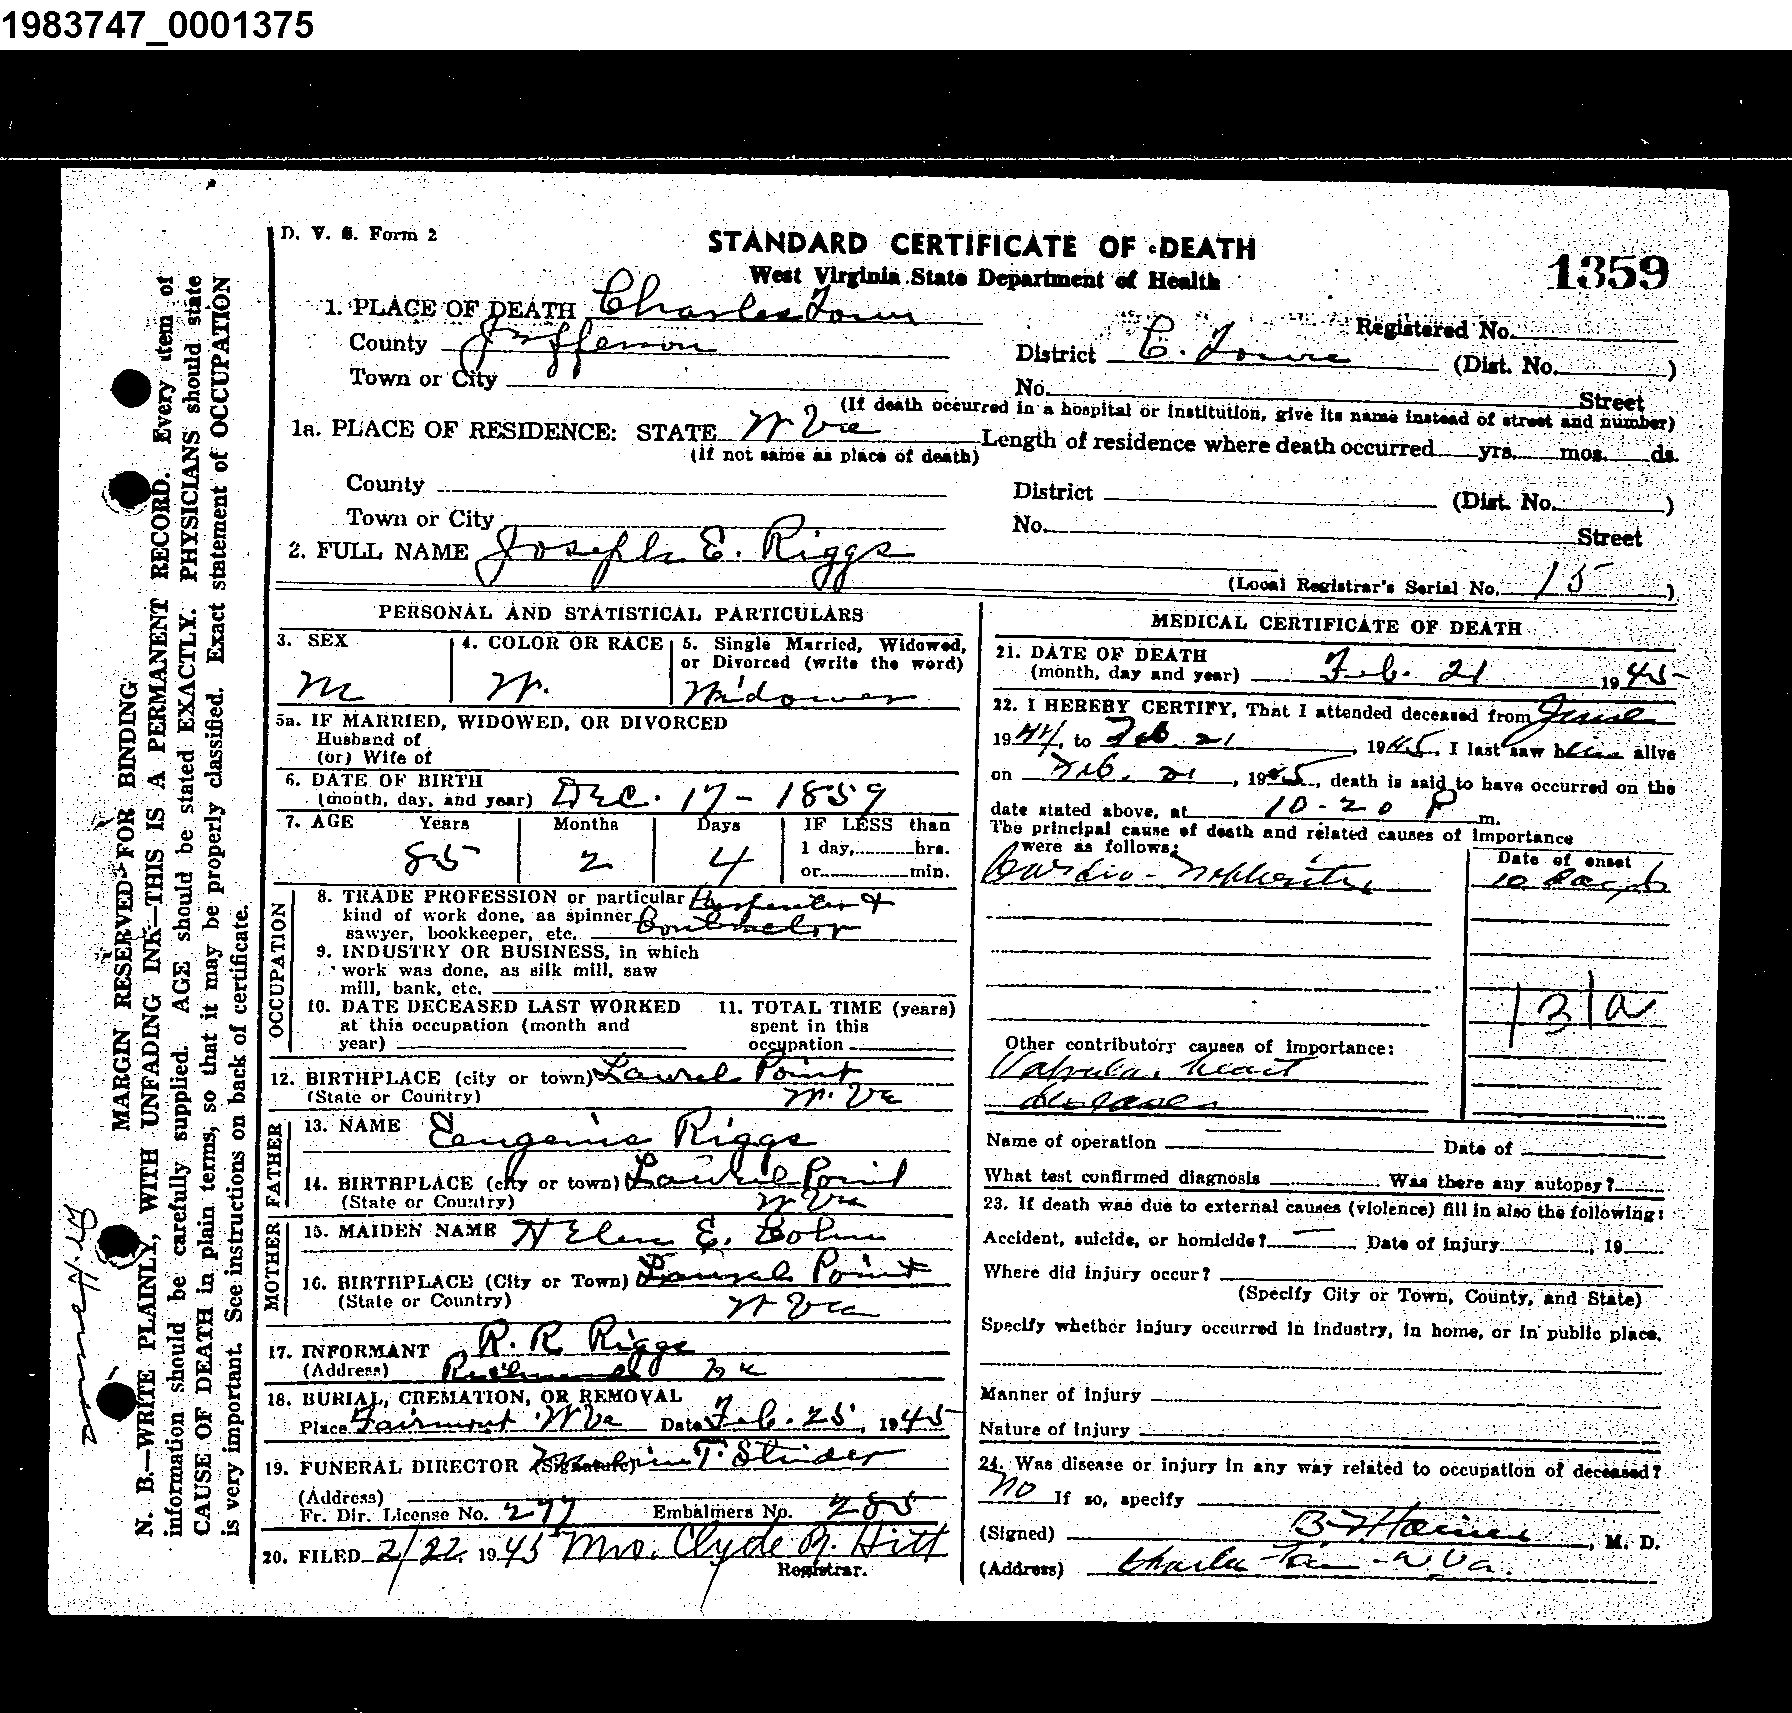 1983747_0001375
D. V. S. Form 2
STANDARD CERTIFICATE OF DEATH
West Virginia State Department of Health
1359
1. PLACE OF DEATH Charles Town
Registered No.
County Jefferson
District C. Town (Dist. No. )
Town or City
No. Street
(If death occurred in a hospital or institution, give its name instead of street and number)
1a. PLACE OF RESIDENCE: STATE W Va
(If not same as place of death)
Length of residence where death occurred yrs. mos. ds.
County
District (Dist. No. )
Town or City
No. Street
2. FULL NAME Joseph E. Riggs
(Local Registrar's Serial No. 15 )
PERSONAL AND STATISTICAL PARTICULARS
3. SEX
M
4. COLOR OR RACE
W.
5. Single Married, Widowed,
or Divorced (write the word)
Widower
5a. IF MARRIED, WIDOWED, OR DIVORCED
Husband of
(or) Wife of
6. DATE OF BIRTH
(month, day, and year) Dec. 17 - 1859
7. AGE Years Months Days
85 2 4
IF LESS than
1 day, hrs.
or min.
OCCUPATION
8. TRADE PROFESSION or particular Carpenter &
kind of work done, as spinner Contractor
sawyer, bookkeeper, etc.
9. INDUSTRY OR BUSINESS, in which
work was done, as silk mill, saw
mill, bank, etc.
10. DATE DECEASED LAST WORKED
at this occupation (month and
year)
11. TOTAL TIME (years)
spent in this
occupation
12. BIRTHPLACE (city or town) Laurel Point
(State or Country) W. Va
FATHER
13. NAME Eugenis Riggs
14. BIRTHPLACE (city or town) Laurel Point
(State or Country) W Va
MOTHER
15. MAIDEN NAME Helen E.
16. BIRTHPLACE (City or Town) Laurel Point
(State or Country) W Va
17. INFORMANT R. R. Riggs
(Address) Richmond Va
18. BURIAL, CREMATION, OR REMOVAL
Place Fairmont W Va Date Feb. 25, 1945
19. FUNERAL DIRECTOR (Signature) T. Strider
(Address)
Fr. Dir. License No. 277 Embalmers No. 285
20. FILED 2/22 1945 Mrs. Clyde R. Hitt
Registrar.
MEDICAL CERTIFICATE OF DEATH
21. DATE OF DEATH
(month, day and year) Feb. 21 1945
22. I HEREBY CERTIFY, That I attended deceased from June
1944, to Feb 21, 1945. I last saw him alive
on Feb. 21, 1945, death is said to have occurred on the
date stated above, at 10-20 P m.
The principal cause of death and related causes of importance
were as follows:
Date of onset
Cardio-Nephritis 10 days
131a
Other contributory causes of importance:
Valvular heart
disease
Name of operation Date of
What test confirmed diagnosis Was there any autopsy?
23. If death was due to external causes (violence) fill in also the following:
Accident, suicide, or homicide? Date of injury , 19
Where did injury occur?
(Specify City or Town, County, and State)
Specify whether injury occurred in industry, in home, or in public place.
Manner of injury
Nature of injury
24. Was disease or injury in any way related to occupation of deceased?
No If so, specify
(Signed) , M. D.
(Address) Charles Town W.Va.
MARGIN RESERVED FOR BINDING
N. B.—WRITE PLAINLY, WITH UNFADING INK—THIS IS A PERMANENT RECORD. Every item of
information should be carefully supplied. AGE should be stated EXACTLY. PHYSICIANS should state
CAUSE OF DEATH in plain terms, so that it may be properly classified. Exact statement of OCCUPATION
is very important. See instructions on back of certificate.